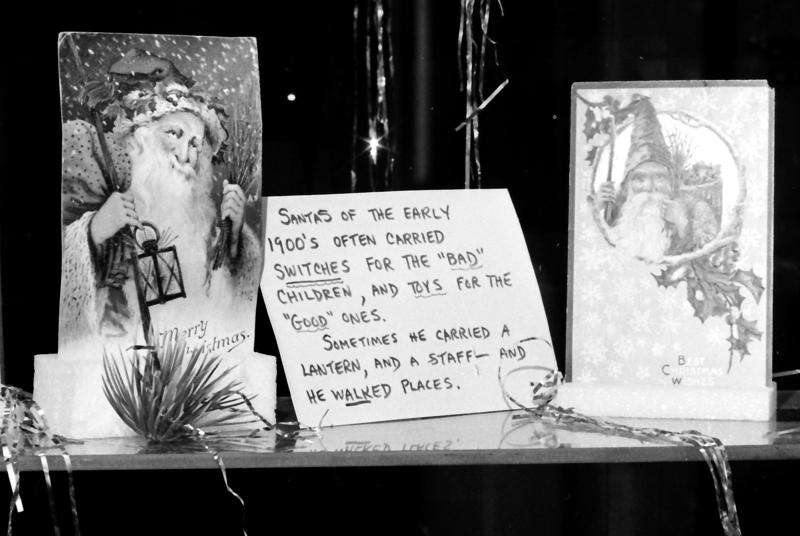 Merry
Christmas.
SANTAS OF THE EARLY
1900'S OFTEN CARRIED
SWITCHES FOR THE "BAD"
CHILDREN, AND TOYS FOR THE
"GOOD" ONES.
SOMETIMES HE CARRIED A
LANTERN, AND A STAFF— AND
HE WALKED PLACES.
BEST
CHRISTMAS
WISHES